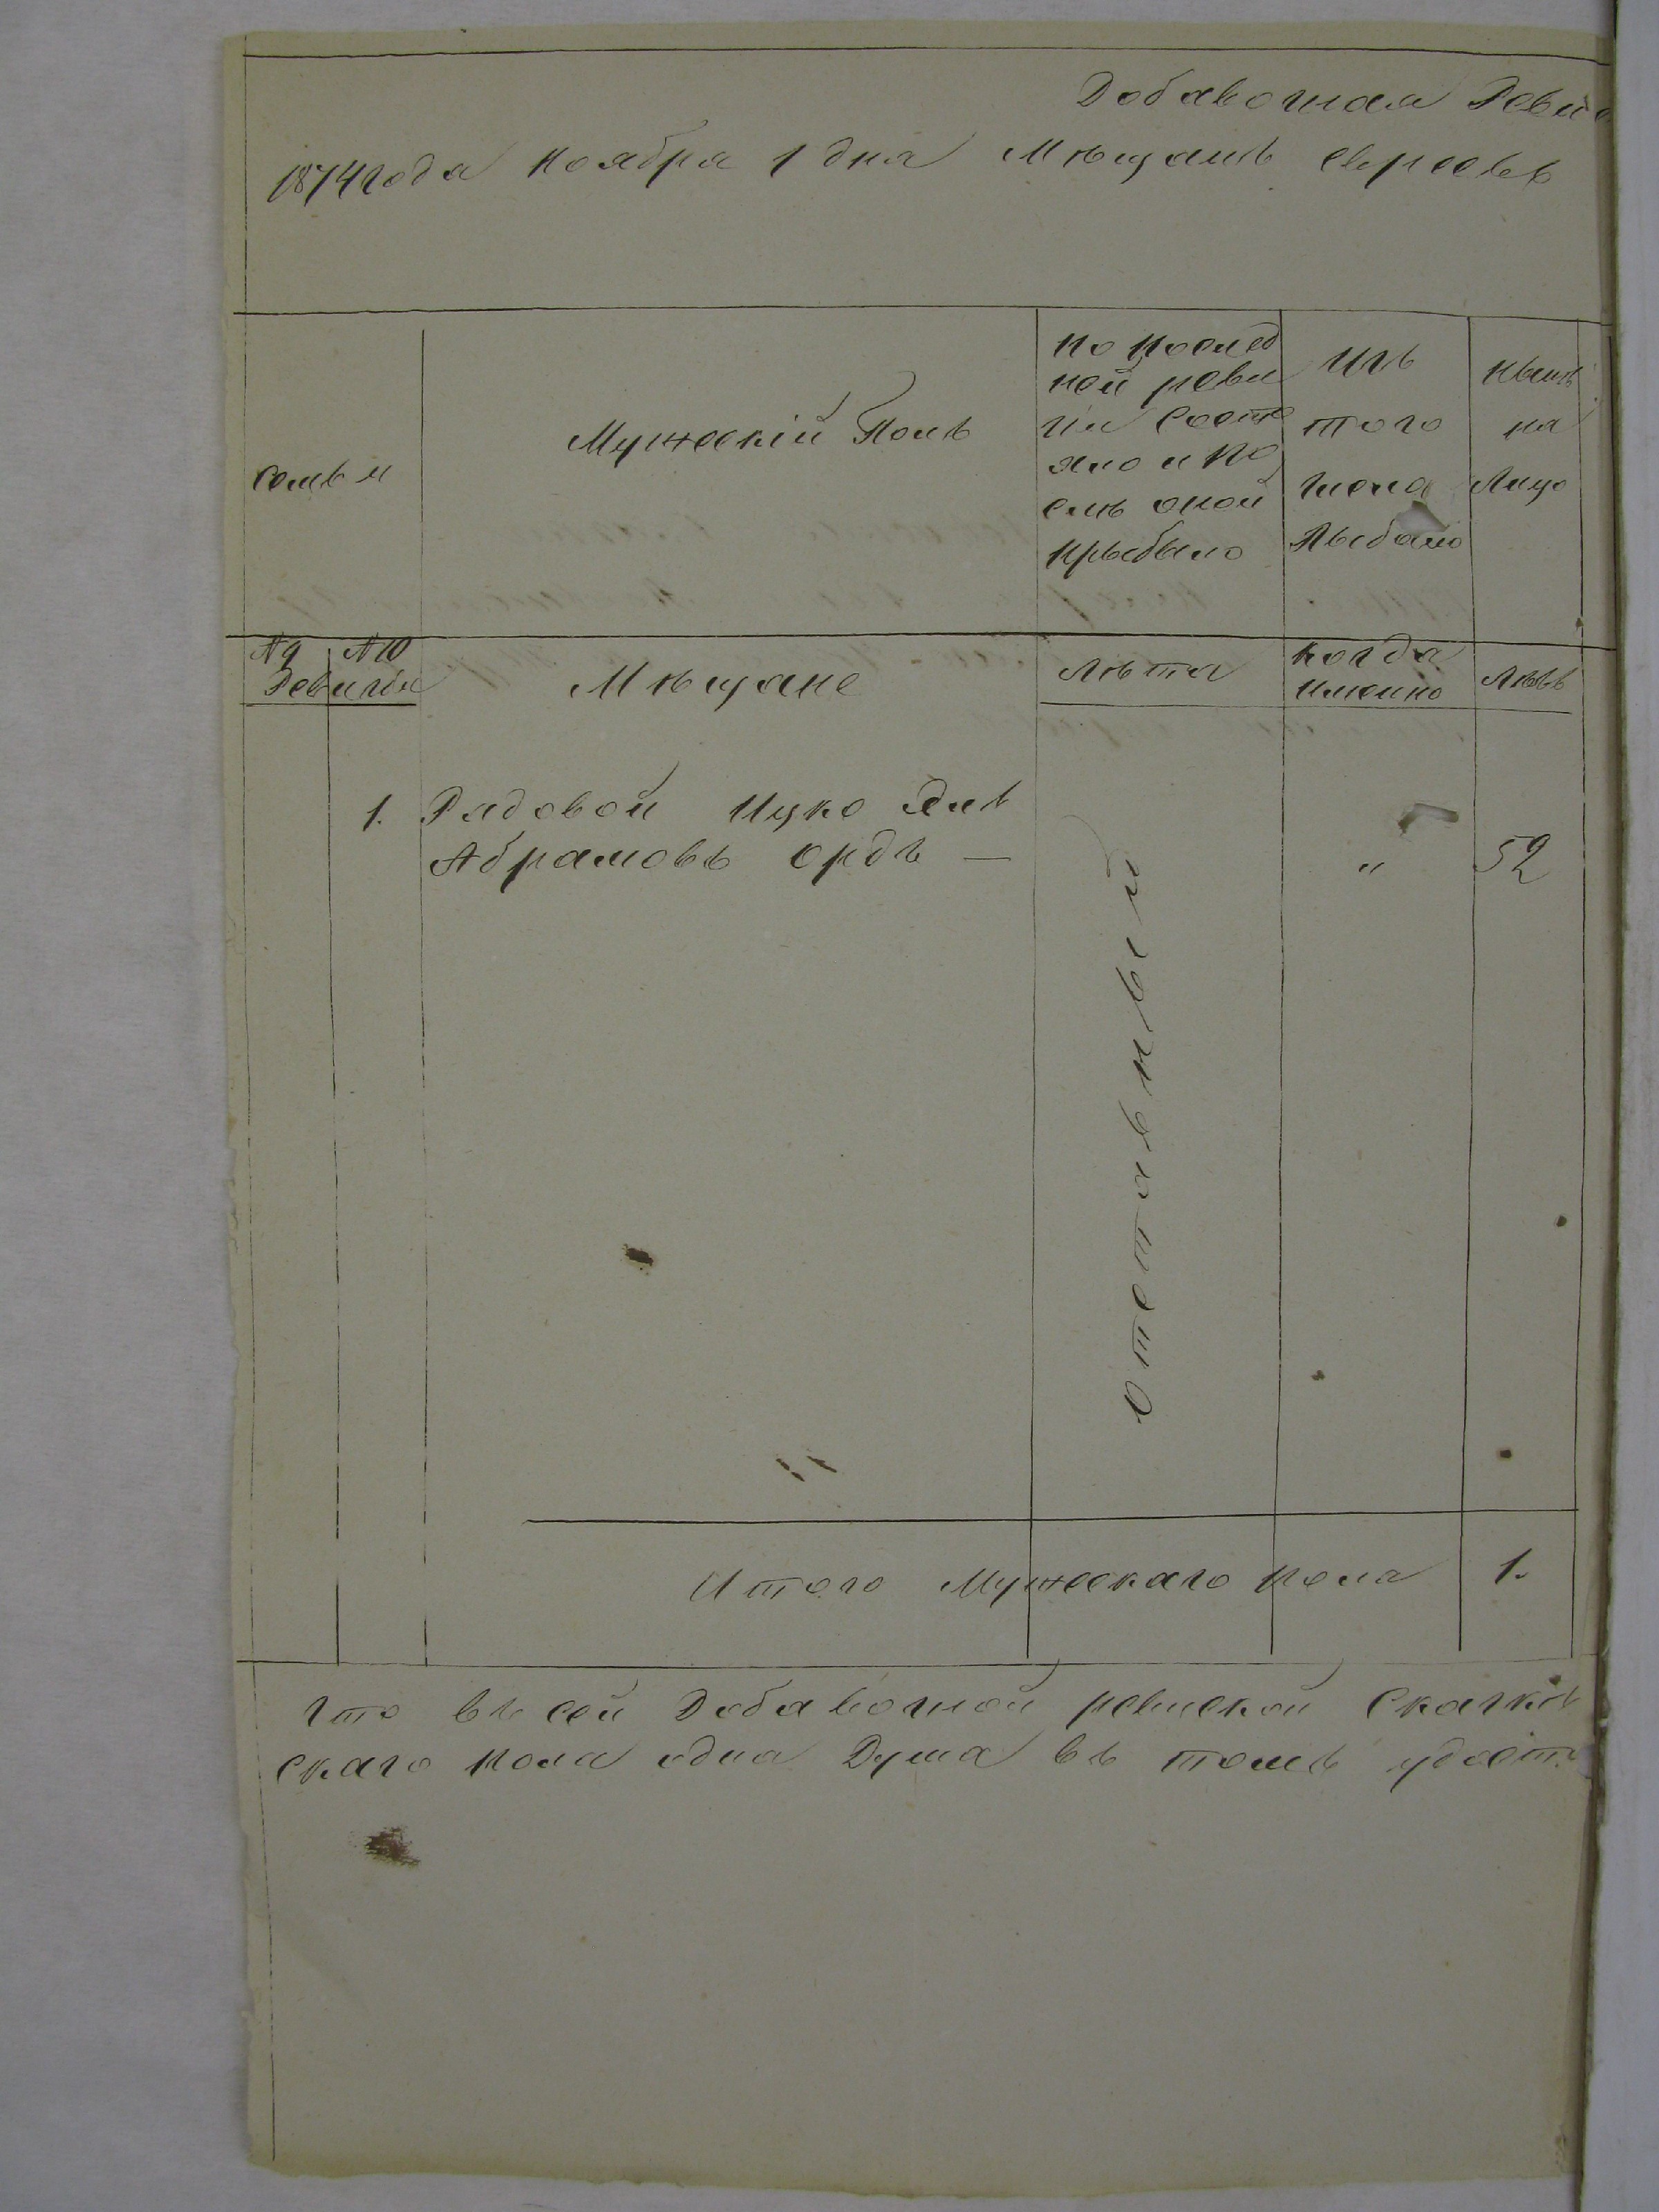 Добавочная Реви
1874 года Ноября 1 дня Мѣщанъ евреевъ
семьи
Мужескій Полъ
По послѣд
ней реви
зіи состо
яло и по
слѣ оной
прыбыло
Изъ
того
числа
Выбыло
Нынѣ
на
Лицо
№ 9 № 10
Ревизіи
Мѣщане
Лѣта
когда
имянно
Лѣтъ
1. Рядовой Ицко
Абрамовъ Ордъ — " 52
Отставный
Итого Мужескаго пола 1.
Что въ сей Добавочной ревиской Сказкѣ
скаго пола одна Душа въ томъ удост